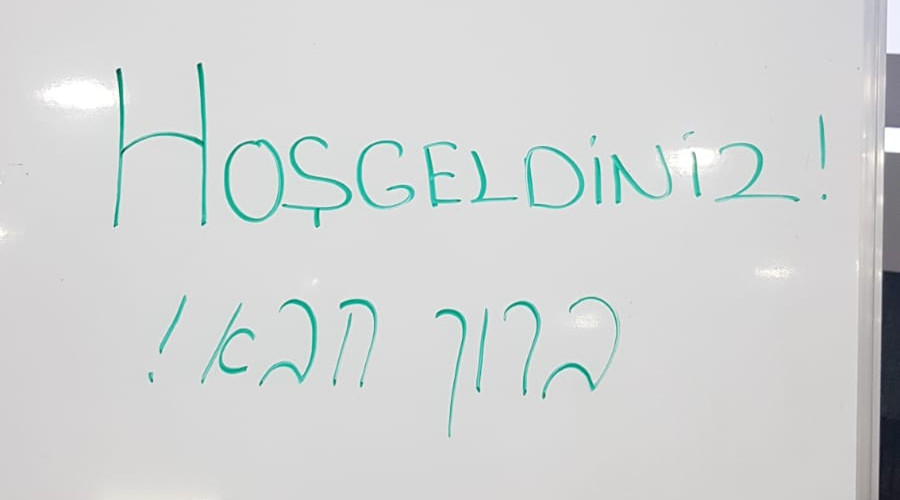 HOŞGELDİNİZ!
ברוך הבא!